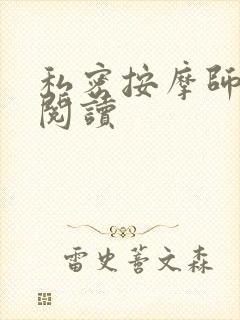 私密按摩師
閱讀
雷史萻文森